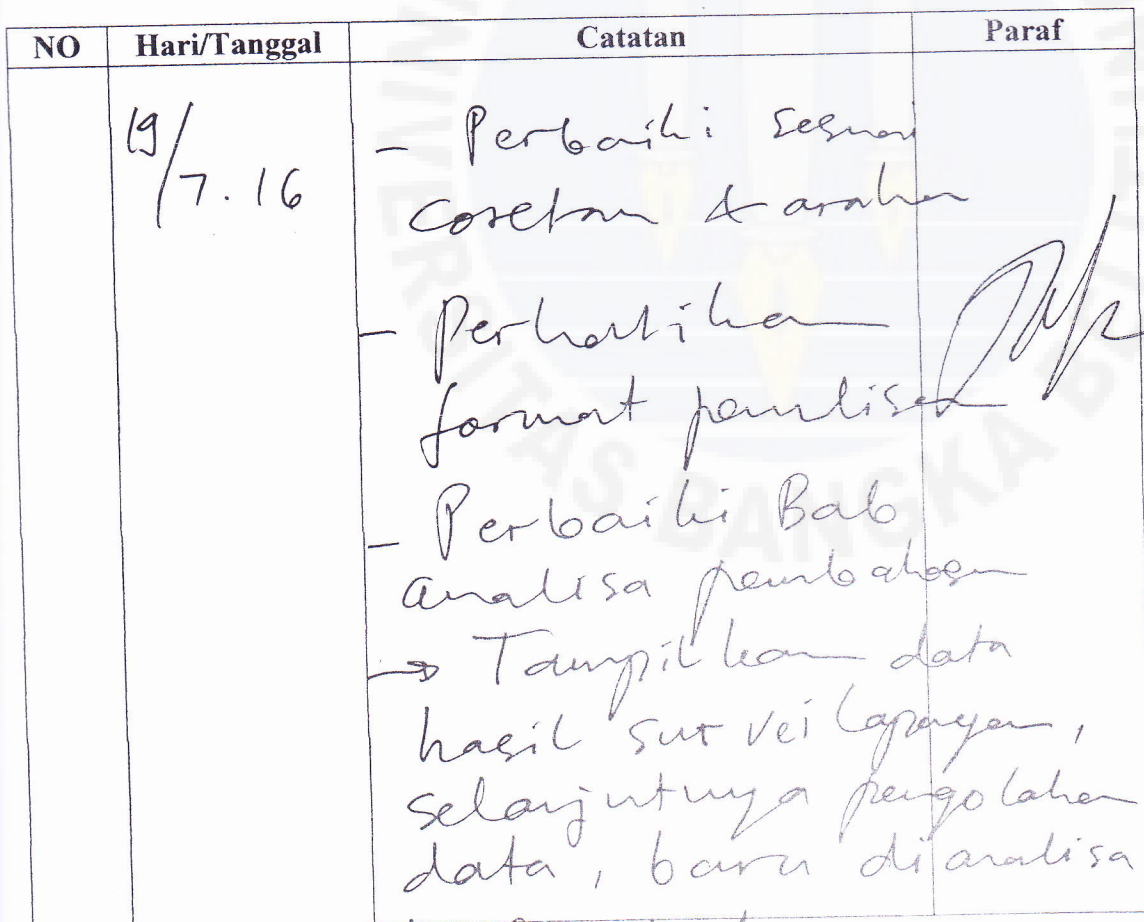 NO Hari/Tanggal Catatan Paraf
19/7.16
- Perbaiki sesuai
coretan & arahan
- Perhatikan
format penulisan
- Perbaiki Bab
analisa pembahasan
→ Tampilkan data
hasil survei lapangan,
selanjutnya pengolahan
data, baru dianalisa
UNIVERSITAS BANGKA B